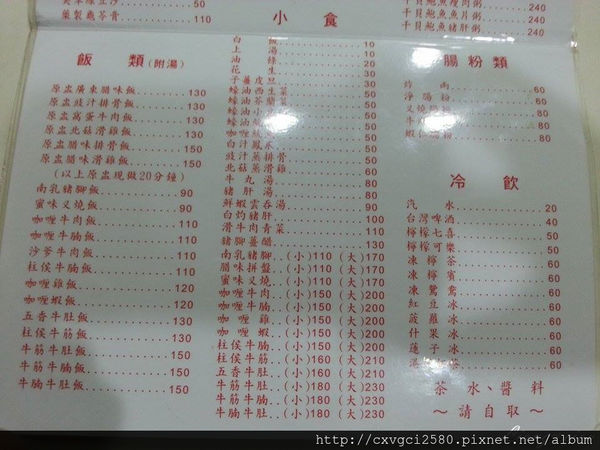 50
藥製龜苓膏............110
飯 類 (附湯)
原盅廣東臘味飯........130
原盅豉汁排骨飯........130
原盅窩蛋牛肉飯........130
原盅北菇滑雞飯........130
原盅臘味排骨飯........150
原盅臘味滑雞飯........150
(以上原盅現做20分鐘)
南乳豬腳飯............90
蜜味叉燒飯............90
咖喱牛肉飯............110
咖喱牛腩飯............110
沙爹牛肉飯............110
柱侯牛腩飯............110
咖喱雞飯..............120
咖喱蝦飯..............120
五香牛肚飯............130
柱侯牛筋飯............130
牛筋牛肚飯............150
牛筋牛腩飯............150
牛腩牛肚飯............150
小 食
白 飯............10
上 湯............10
油 條............20
花 生............30
子薑皮旦............30
蠔油西生菜............50
蠔油芥蘭............50
50
50
50
白汁鳳爪............50
豉汁蒸排骨............50
北菇蒸雞............60
牛丸湯............50
豬肝湯............50
鮮蝦雲吞湯............90
白灼豬肝............90
滑牛肉青菜............110
豬腳薑醋............130
南乳豬腳..(小)110 (大)170
臘味拼盤..(小)110 (大)170
蜜味叉燒..(小)110 (大)170
咖喱牛肉..(小)150 (大)200
咖喱牛腩..(小)150 (大)200
咖 喱 雞..(小)150 (大)200
咖 喱 蝦..(小)150 (大)200
柱侯牛腩..(小)150 (大)200
柱侯牛筋..(小)160 (大)210
五香牛肚..(小)160 (大)210
牛筋牛肚..(小)180 (大)230
牛筋牛腩..(小)180 (大)230
牛腩牛肚..(小)180 (大)230
干貝鮑魚瘦肉粥
干貝鮑魚魚片粥..240
干貝鮑魚豬肝粥..240
腸粉類
炸 兩............60
淨腸粉............60
叉燒腸粉............80
80
80
冷 飲
汽 水............20
台灣啤酒............40
檸檬七喜............50
檸檬可樂............50
凍檸茶............60
凍檸賓............60
凍鴛鴦............60
紅豆冰............60
菠蘿冰............60
什果冰............60
蓮子冰............60
60
茶 水、醬 料
～請自取～
http://cxvgci2580.pixnet.net/album